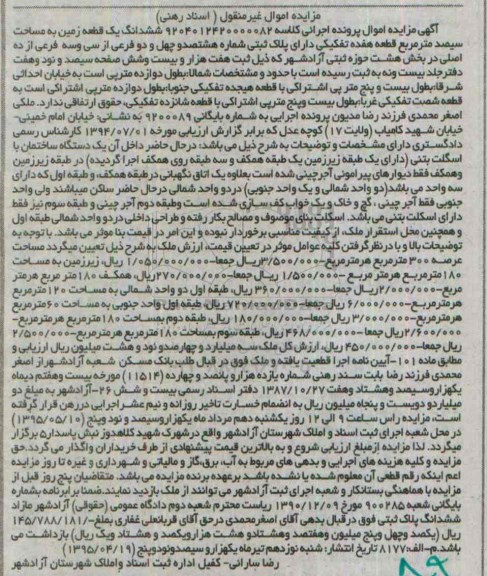 مزایده اموال غیرمنقول ( اسناد رهنی)
آگهی مزایده اموال پرونده اجرائی کلاسه ۹۲۰۴۰۱۲۴۲۰۰۰۰۰۸۲ ششدانگ یک قطعه زمین به مساحت
سیصد مترمربع قطعه هفده تفکیکی دارای پلاک ثبتی شماره هشتصدو چهل و دو فرعی از سی وسه فرعی از ده
اصلی در بخش هشت حوزه ثبتی آزادشهر که ذیل ثبت هفت هزار و بیست وشش صفحه سیصد و نود وهفت
دفترجلد بیست ونه به ثبت رسیده است با حدود و مشخصات شمالا:بطول دوازده متر پی است به خیابان احداثی
شرقا:بطول بیست و پنج متر پی اشتراکی با قطعه هیجده تفکیکی جنوبا:بطول دوازده متر پی اشتراکی است به
قطعه شصت تفکیکی غربا:بطول بیست وپنج متر پی اشتراکی با قطعه شانزده تفکیکی، حقوق ارتفاقی ندارد. ملکی
اصغر محمدی فرزند رضا مدیون پرونده اجرایی به شماره بایگانی ۹۲۰۰۰۸۹ به نشانی: خیابان امام خمینی-
خیابان شهید کامیاب (ولایت ۱۷) کوچه عدل که برابر گزارش ارزیابی مورخه ۱۳۹۴/۰۷/۰۱ کارشناس رسمی
دادگستری دارای مشخصات و توضیحات به شرح ذیل می باشد: درحال حاضر داخل آن یک دستگاه ساختمان با
اسکلت بتنی (دارای یک طبقه زیرزمین یک طبقه همکف و سه طبقه روی همکف اجرا گردیده) در طبقه زیرزمین
وهمکف فقط دیوارهای پیرامونی آجرچینی شده است بعلاوه یک اتاق نگهبانی درطبقه همکف، و طبقه اول که دارای
سه واحد می باشد(دو واحد شمالی و یک واحد جنوبی) دردو واحد شمالی درحال حاضر ساکن میباشند ولی واحد
جنوبی فقط آجر چینی ، گچ و خاک و یک خواب کف سازی شده است وطبقه دوم آجر چینی و طبقه سوم نیز فقط
دارای اسکلت بتنی می باشد. اسکلت بنای موصوف و مصالح بکار رفته و طراحی داخلی دردو واحد شمالی طبقه اول
و همچنین محل استقرار ملک، از کیفیت مناسبی برخوردار نبوده و این امر در قیمت بنا موثر می باشد. با توجه به
توضیحات بالا و با درنظرگرفتن کلیه عوامل موثر در تعیین قیمت، ارزش ملک به شرح ذیل تعیین میگردد مساحت
عرصه ۳۰۰ مترمربع هرمترمربع-۳/۵۰۰/۰۰۰ریال جمعا-۱/۰۵۰/۰۰۰/۰۰۰ ریال، زیرزمین به مساحت
۱۸۰مترمربع هرمتر مربع -۱/۵۰۰/۰۰۰ ریال جمعا-۲۷۰/۰۰۰/۰۰۰ریال، همکف ۱۸۰متر مربع هرمتر
مربع-۲/۰۰۰/۰۰۰ریال جمعا-۳۶۰/۰۰۰/۰۰۰ ریال، طبقه اول دو واحد شمالی به مساحت ۱۲۰مترمربع
هرمترمربع-۶/۰۰۰/۰۰۰ ریال جمعا-۷۲۰/۰۰۰/۰۰۰ ریال، طبقه اول واحد جنوبی به مساحت ۶۰مترمربع
هرمترمربع-۳/۰۰۰/۰۰۰ ریال جمعا-۱۸۰/۰۰۰/۰۰۰ ریال، طبقه دوم بمساحت ۱۸۰مترمربع هرمترمربع-
۲/۶۰۰/۰۰۰ ریال جمعا-۴۶۸/۰۰۰/۰۰۰ ریال، طبقه سوم بمساحت ۱۸۰مترمربع هرمترمربع-۲/۵۰۰/۰۰۰
ریال جمعا-۴۵۰/۰۰۰/۰۰۰ ریال، ارزش کل ملک سه میلیارد و چهارصدو نود و هشت میلیون ریال ارزیابی و
مطابق ماده ۱۰۱-آیین نامه اجرا قطعیت یافته و ملک فوق در قبال طلب بانک مسکن شعبه آزادشهر از اصغر
محمدی فرزند رضا بابت سند رهنی شماره یازده هزارو پانصد و چهارده (۱۱۵۱۴) مورخه بیست وهفتم دیماه
یکهزاروسیصد وهشتاد وهفت ۱۳۸۷/۱۰/۲۷ دفتر اسناد رسمی بیست و شش ۲۶-آزادشهر به مبلغ دو
میلیاردو دویست و پنجاه میلیون ریال به انضمام خسارت تاخیر روزانه و نیم عشر اجرایی دررهن قرار گرفته
است، مزایده راس ساعت ۹ الی ۱۲ روز یکشنبه دهم مرداد ماه یکهزاروسیصد و نود وپنج (۱۳۹۵/۰۵/۱۰)
در محل شعبه اجرای ثبت اسناد و املاک شهرستان آزادشهر واقع درشهرک شهید کلاهدوز نبش پاسداری ۵ برگزار
میگردد. لذا مزایده ازمبلغ ارزیابی شروع و به بالاترین قیمت پیشنهادی از طرف خریداران واگذار می گردد.حق
مزایده و کلیه هزینه های اجرایی و بدهی های مربوط به آب، برق،گاز و مالیاتی و شهرداری و غیره تا روز مزایده
اعم اینکه رقم قطعی آن معلوم شده یا نشده باشد برعهده برنده مزایده می باشد. متقاضیان پنج روز قبل از
مزایده با هماهنگی بستانکار و شعبه اجرای ثبت آزادشهر می توانند از ملک بازدید نمایند.ضمنا برابرنامه بشماره
بایگانی شعبه ۹۰۰۲۸۵ مورخ ۱۳۹۰/۱۲/۰۹ ریاست محترم شعبه دوم دادگاه عمومی (حقوقی) آزادشهر مازاد
ششدانگ پلاک ثبتی فوق درقبال بدهی آقای اصغر محمدی درحق آقای قربانعلی غفاری بمبلغ-/۱۴۵/۷۸۸/۱۸۱
ریال (یکصد وچهل وپنج میلیون وهفتصد وهشتادو هشت هزارویکصد و هشتاد ویک ریال) بازداشت می
باشد.م-الف:۸۱۷۷ تاریخ انتشار: شنبه نوزدهم تیرماه یکهزارو سیصدونودوپنج (۱۳۹۵/۰۴/۱۹)
رضا سارانی- کفیل اداره ثبت اسناد واملاک شهرستان آزادشهر